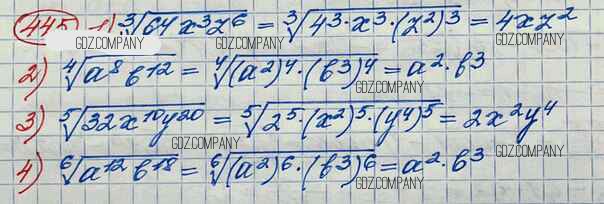 445 1) ∛64x³z⁶ = ∛4³·x³·(z²)³ = 4xz²
GDZ.COMPANY GDZ.COMPANY GDZ.COMPANY
2) ∜a⁸b¹² = ∜(a²)⁴·(b³)⁴ = a²·b³
GDZ.COMPANY
3) ⁵√32x¹⁰y²⁰ = ⁵√2⁵·(x²)⁵·(y⁴)⁵ = 2x²y⁴
GDZ.COMPANY GDZ.COMPANY
4) ⁶√a¹²b¹⁸ = ⁶√(a²)⁶·(b³)⁶ = a²·b³
GDZ.COMPANY
GDZ.COMPANY GDZ.COMPANY